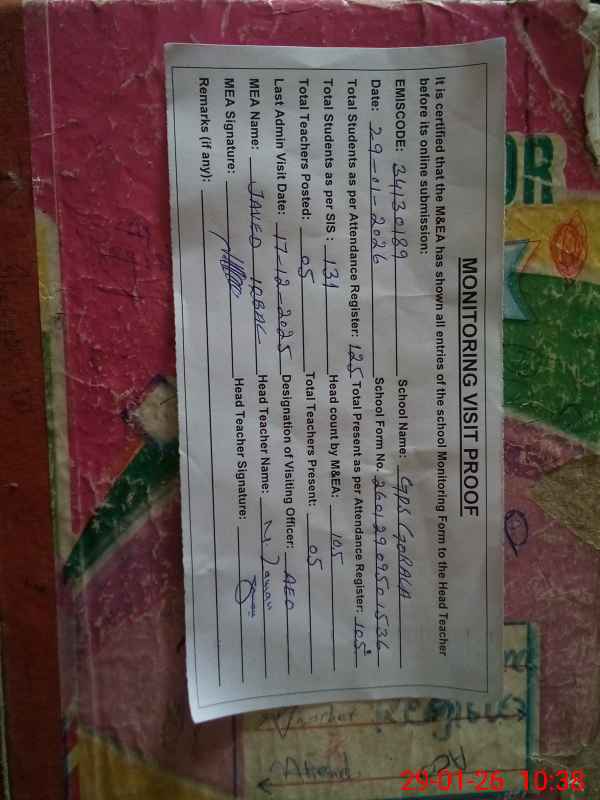 MONITORING VISIT PROOF
It is certified that the M&EA has shown all entries of the school Monitoring Form to the Head Teacher
before its online submission:
EMISCODE: 34130189 School Name: GPS GORALA
Date: 29-01-2026 School Form No. 26012909501536
Total Students as per Attendance Register: 125 Total Present as per Attendance Register: 105
Total Students as per SIS: 131 Head count by M&EA: 105
Total Teachers Posted: 05 Total Teachers Present: 05
Last Admin Visit Date: 17-12-2025 Designation of Visiting Officer: AEO
MEA Name: JAVED IQBAL Head Teacher Name:
MEA Signature: Head Teacher Signature:
Remarks (if any):
OR
Register
Attend.
29-01-26 10:38